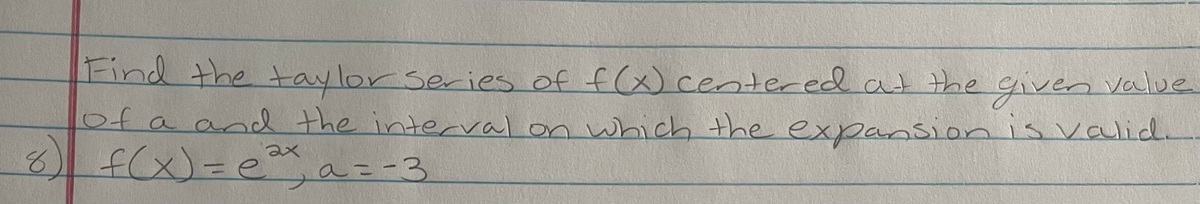 Find the taylor series of f(x) centered at the given value
of a and the interval on which the expansion is valid.
8) f(x) = e^2x, a = -3